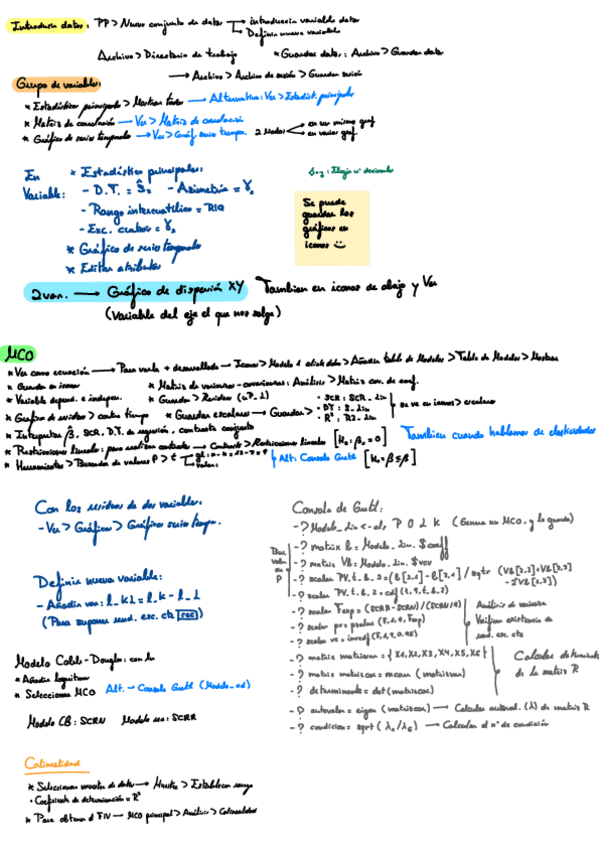 Introducir datos: PP > Nuevo conjunto de datos → introducción variable datos
→ Definir nueva variable
Archivo > Directorio de trabajo * Guardar datos: Archivo > Guardar datos
→ Archivo > Archivo de sesión > Guardar sesión
Grupo de variables:
* Estadísticos principales > Mostrar todos → Alternativa: Ver > Estadíst. principales
* Matriz de correlación → Ver > Matriz de correlación
* Gráfico de series temporales → Ver > Gráf. series tempo. 2 Modos → en un mismo graf
→ en varios graf.
En Variable:
* Estadísticos principales:
- D.T. = Ŝx - Asimetría = γ1
- Rango intercuartílico = RIQ
- Exc. curtosis = γ2
* Gráfico de series temporales
* Editar atributos
Se puede
guardar los
gráficos en
iconos
2 var. → Gráfico de dispersión XY También en iconos de abajo y Ver
(Variable del eje el que nos salga)
MCO
* Ver como ecuación → Para verla + desarrollada → Iconos > Modelo 1 > Añadir tabla de Modelos > Tabla de Modelos > Mostrar
* Guardar en iconos * Matriz de varianzas-covarianzas: Análisis > Matriz cov. de coef.
* Variable depend. e indepen. * Guardar > Residuos
* Gráfico de residuos > contra tiempo * Guardar escalares → Guardar >
· SCR: SCR_lin
· DT: S_lin
· R²: R2_lin
se ve en iconos > escalares
* Interpretar β̂, SCR, D.T. de regresión, contraste conjunto
* Restricciones lineales: para realizar contrastes → Contrastes > Restricciones lineales [H₀: β₂ = 0] También cuando hablamos de elasticidades
* Herramientas > Buscador de valores P > t
Alt: Consola Gretl [H₀ = β ≤ β]
Con los residuos de dos variables:
- Ver > Gráficos > Gráficos series tempo.
Definir nueva variable:
- Añadir var: l_kL = l_k - l_L
(Para suponer rend. esc. cts
Modelo Cobb-Douglas: con ln
* Añadir logaritmos
* Seleccionar MCO Alt. → Consola Gretl
Modelo CB: SCRN Modelo res: SCRR
Colinealidad
* Seleccionar muestra de datos → Muestra > Establecer rango
· Coeficiente de determinación = R²
* Para obtener el FIV → MCO principal > Análisis > Colinealidad
Consola de Gretl:
- ? Modelo_lin <- ols P 0 L K (Genera un MCO, y lo guarda)
- ? matrix b = Modelo_lin.$coeff
- ? matrix Vb = Modelo_lin.$vcv
- ? scalar PV_t_b_2 = (b[2,1] - b[3,1] / sqrt (Vb[2,2] + Vb[3,3]
- 2Vb[2,3])
- ? scalar PV_t_b_2 = cdf(t, 9, t_b_2)
- ? scalar Fexp = (SCRR-SCRN)/(SCRN/9)
- ? scalar pv = pvalue (F, 1, 9, Fexp)
- ? scalar vc = invcdf (F, 1, 9, 0.95)
Análisis de varianza
Verifican existencia de
rend. esc. cts
- ? matrix matrizvar = {X1, X2, X3, X4, X5, X6}
- ? matrix matrizcor = mcorr (matrizvar)
- ? determinante = det(matrizcor)
Calcular determinante
de la matriz R
- ? autovalor = eigen (matrizcor) → Calcular autoval. (λ) de matriz R
- ? condicion = sqrt (λ₁/λ₆) → Calcular el nº de condición